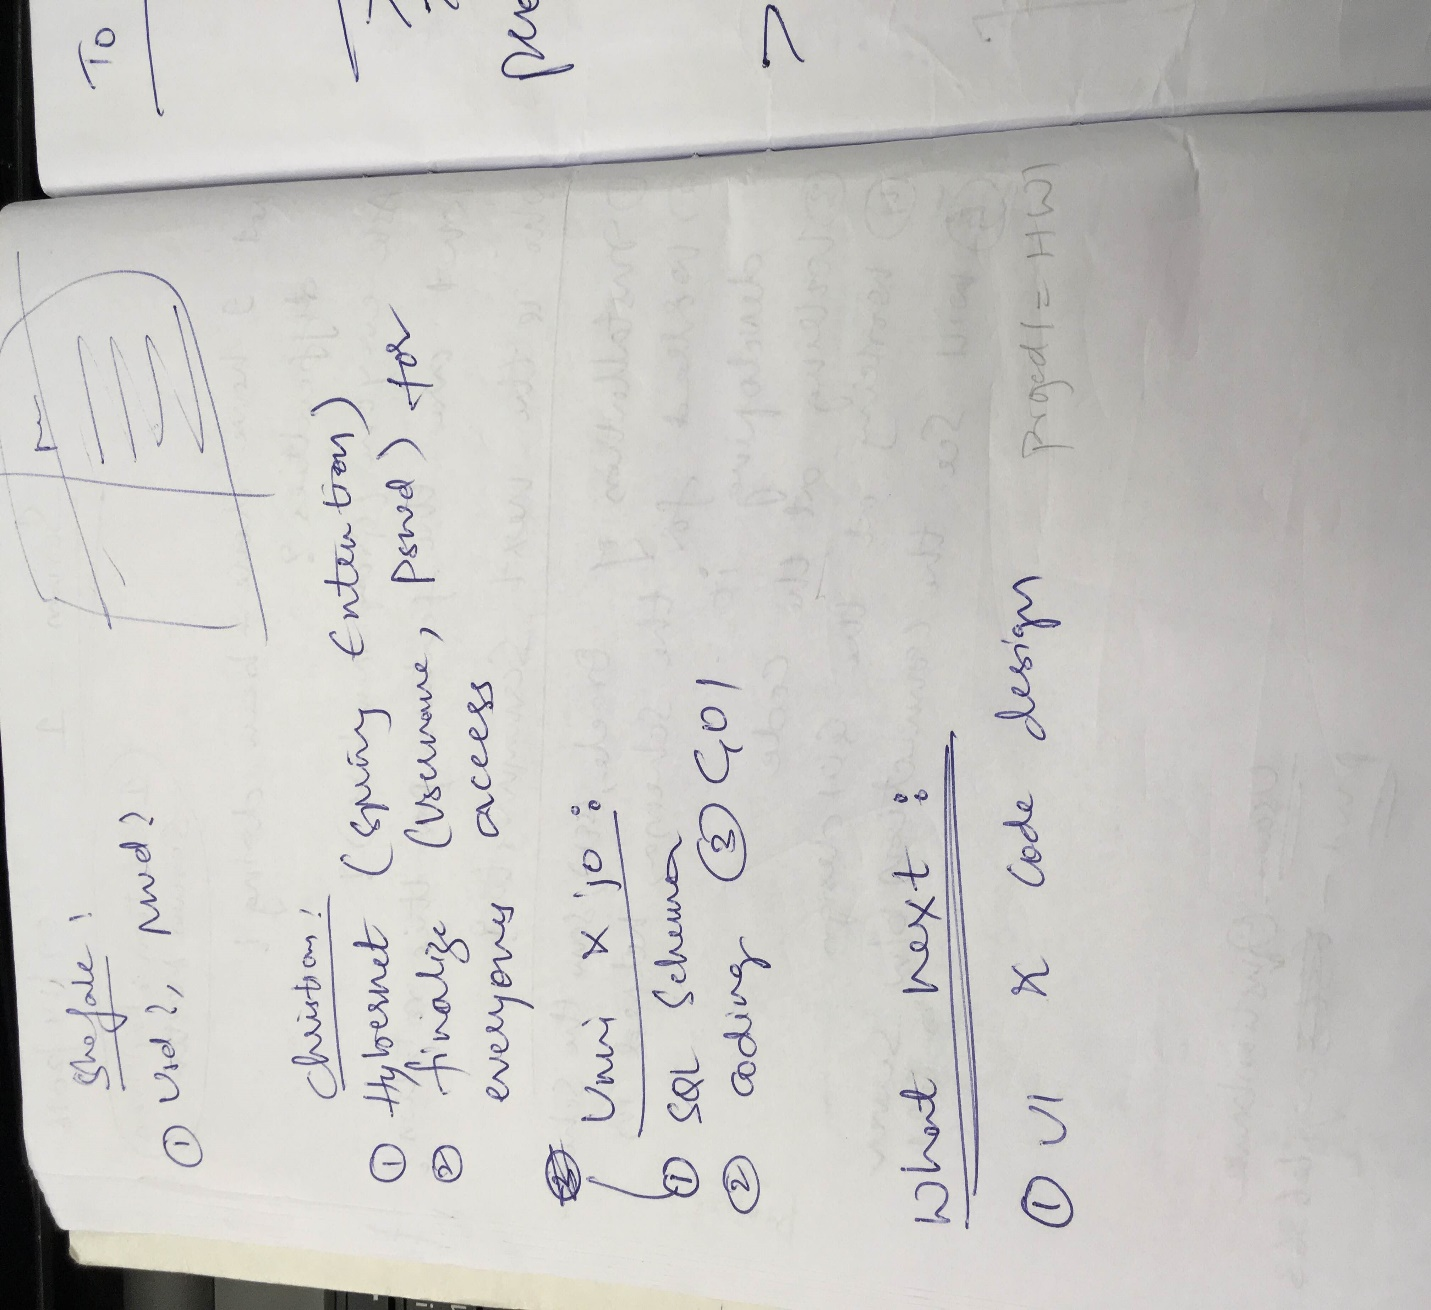 Shefale!
① Usd?, pwd?
Christion!
① Hybesnet (spring Entention)
② finalize (Usename, pswd) for
everyones access
Umi x jo:
① SQL Schema
② coding ③ GOI
What next:
① UI x Code design
To